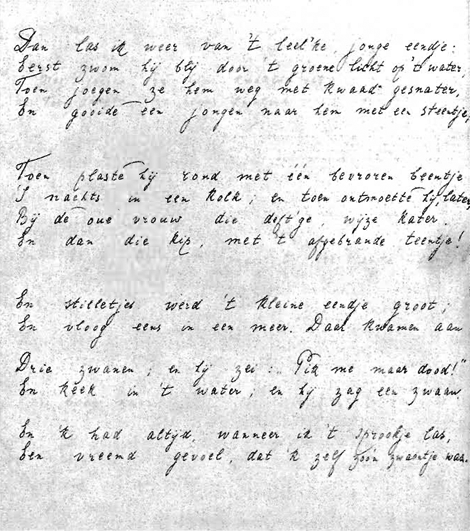 Dan las ik weer van 't leel'ke jonge eendje:
Eerst zwom hij blij door 't groene licht op 't water.
Toen joegen ze hem weg met kwaad gesnater,
En gooide een jongen naar hem met een steentje,
Toen plaste hij rond met één bevroren beentje
'S nachts in een kolk; en toen ontmoette hij, later,
Bij de oue vrouw die deft'ge wijze kater.
En dan die kip, met 't afgebrande teentje!
En stilletjes werd 't kleine eendje groot;
En vloog eens in een meer. Daar kwamen aan
Drie zwanen; en hij zei: „Pik me maar dood!"
En keek in 't water; en hij zag een zwaan,
En 'k had altijd, wanneer ik 't sprookje las,
Een vreemd gevoel, dat 'k zelf zoo'n zwaantje was.